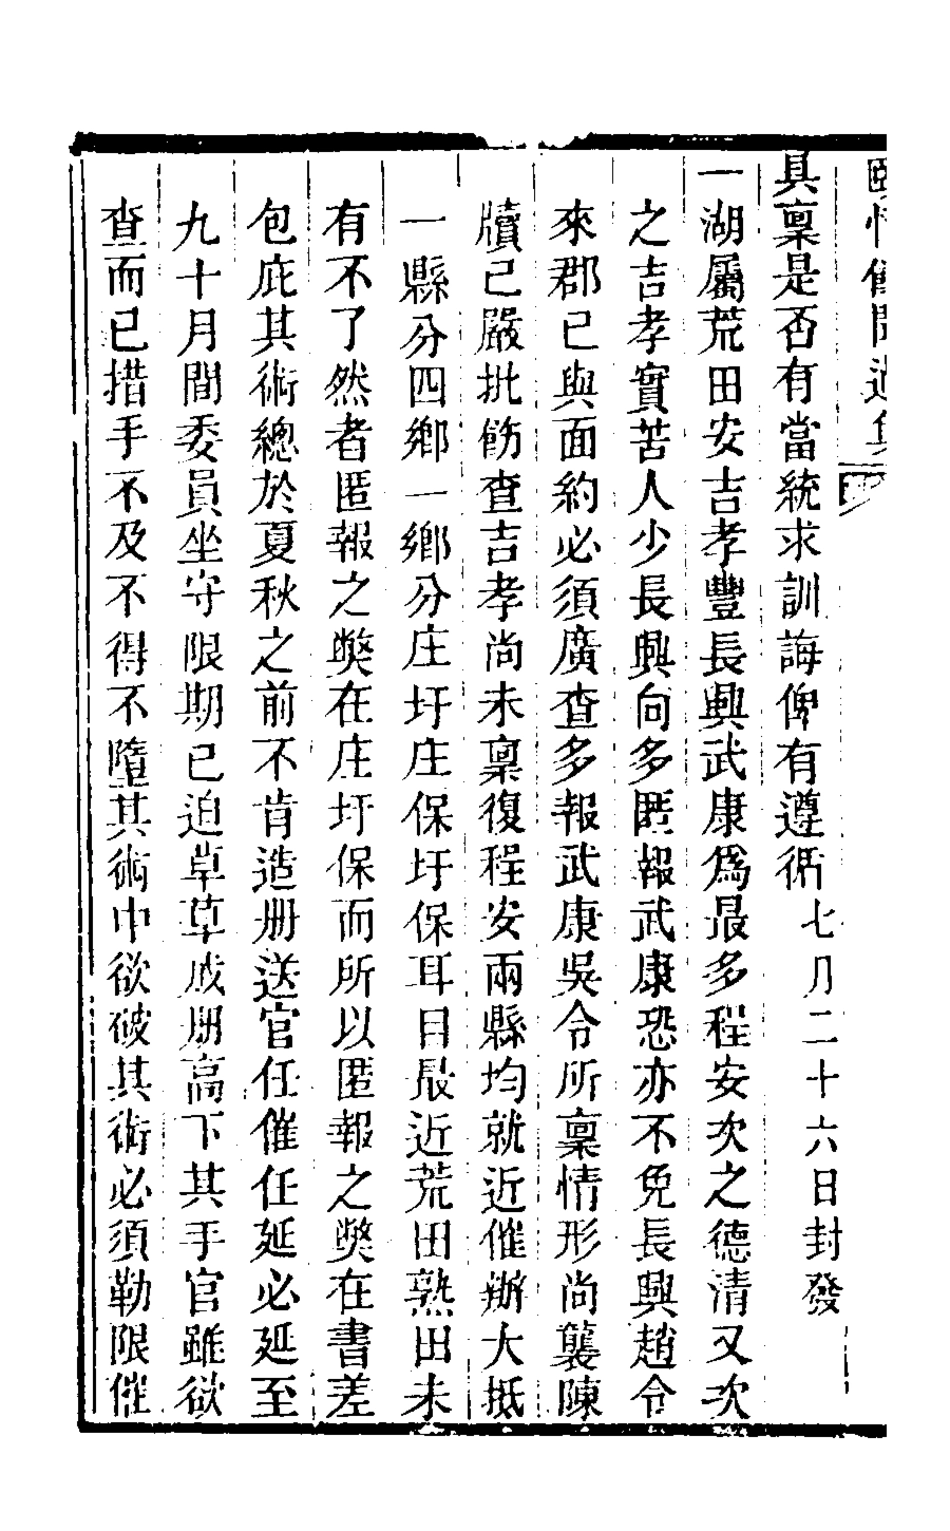 具稟是否有當統求訓誨俾有遵循 七月二十六日封發
一湖屬荒田安吉孝豐長興武康爲最多程安次之德清又次
之吉孝實苦人少長興向多匿報武康恐亦不免長興趙令
來郡已與面約必須廣查多報武康吳令所稟情形尚襲陳
牘已嚴批飭查吉孝尚未稟復程安兩縣均就近催辦大抵
一縣分四鄉一鄉分庄圩庄保圩保耳目最近荒田熟田未
有不了然者匿報之獘在庄圩保而所以匿報之獘在書差
包庇其術總於夏秋之前不肯造册送官任催任延必延至
九十月間委員坐守限期已迫草草成册高下其手官雖欲
查而已措手不及不得不墮其術中欲破其術必須勒限催